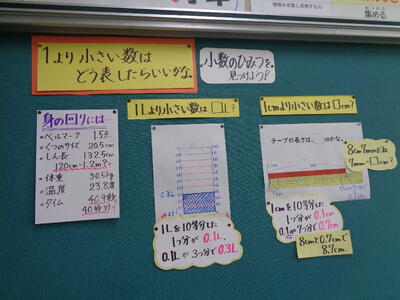 集める
1より小さい数は
どう表したらいいかな。
小数のひみつを
見つけよう!
身の回りには…
・ベルマーク 1.5点
・くつのサイズ 20.5cm
・しん長 132.5cm
120cm→1.2m?
・体重 30.5kg
・温度 23.8度
・タイム 40.9秒
1Lより小さい数は□L?
0.3L
1Lを10等分した
1つ分が0.1L
0.1Lが3つ分で0.3L
1cmより小さい数は□cm?
テープの長さは、 cmかな。
8cm7mmは
7mm=□cm?
1cmを10等分した
1つ分が0.1cm
0.1が7つ分で0.7cm
8cmと0.7cmで
8.7cm